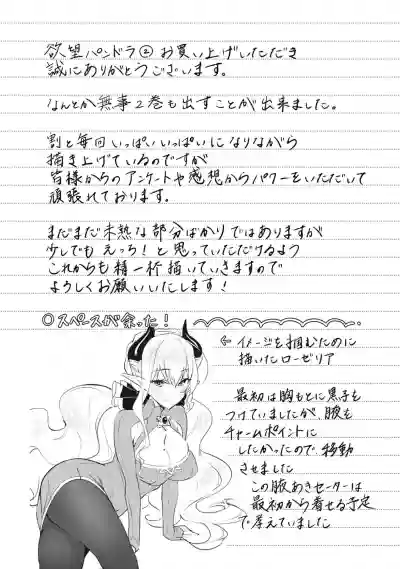 欲望パンドラ②お買い上げいただき
誠にありがとうございます。
なんとか無事2巻も出すことが出来ました。
割と毎回いっぱいいっぱいになりながら
描き上げているのですが
皆様からのアンケートや感想からパワーをいただいて
頑張れております。
まだまだ未熟な部分ばかりではありますが
少しでもえっち！と思っていただけるよう
これからも精一杯描いていきますので
ようしくお願いいたします！
○スペースが余った！
← イメージを掴むために
描いたローゼリア
最初は胸もとに黒子を
つけていましたが、腋も
チャームポイントに
したかったので移動
させました
この腋あきセーターは
最初から着せる予定
で考えていました